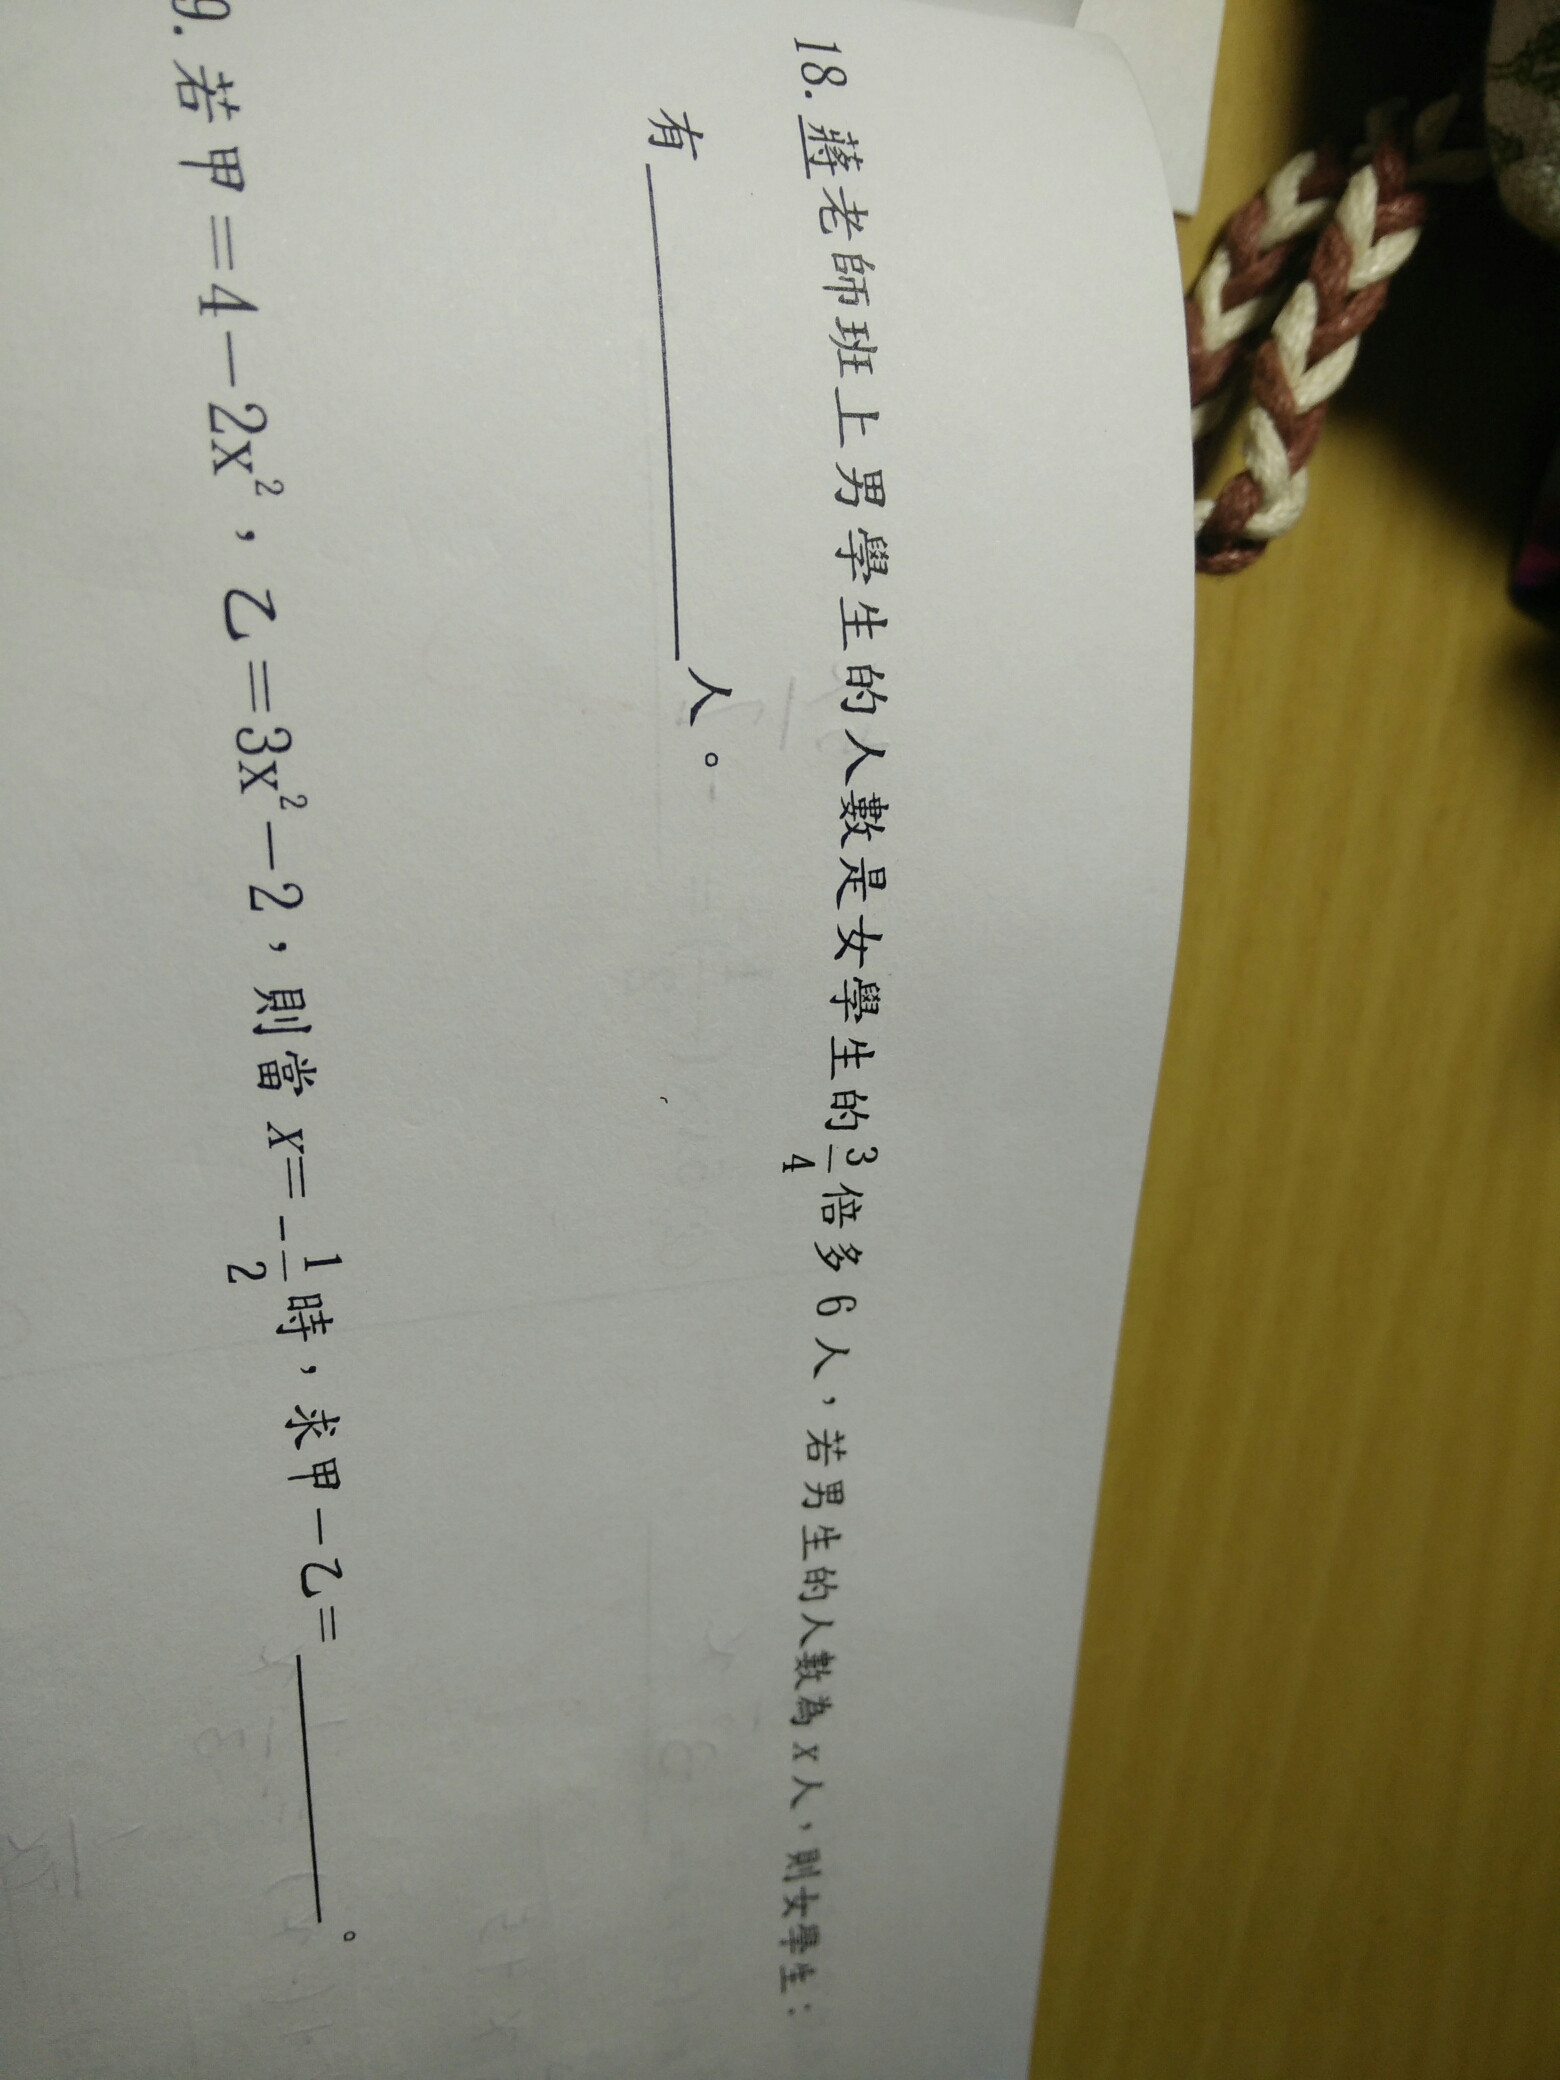 18. 蔣老師班上男學生的人數是女學生的3/4倍多6人，若男生的人數為x人，則女學生
有__________人。
9. 若甲=4-2x²，乙=3x²-2，則當x=-1/2時，求甲-乙=__________。